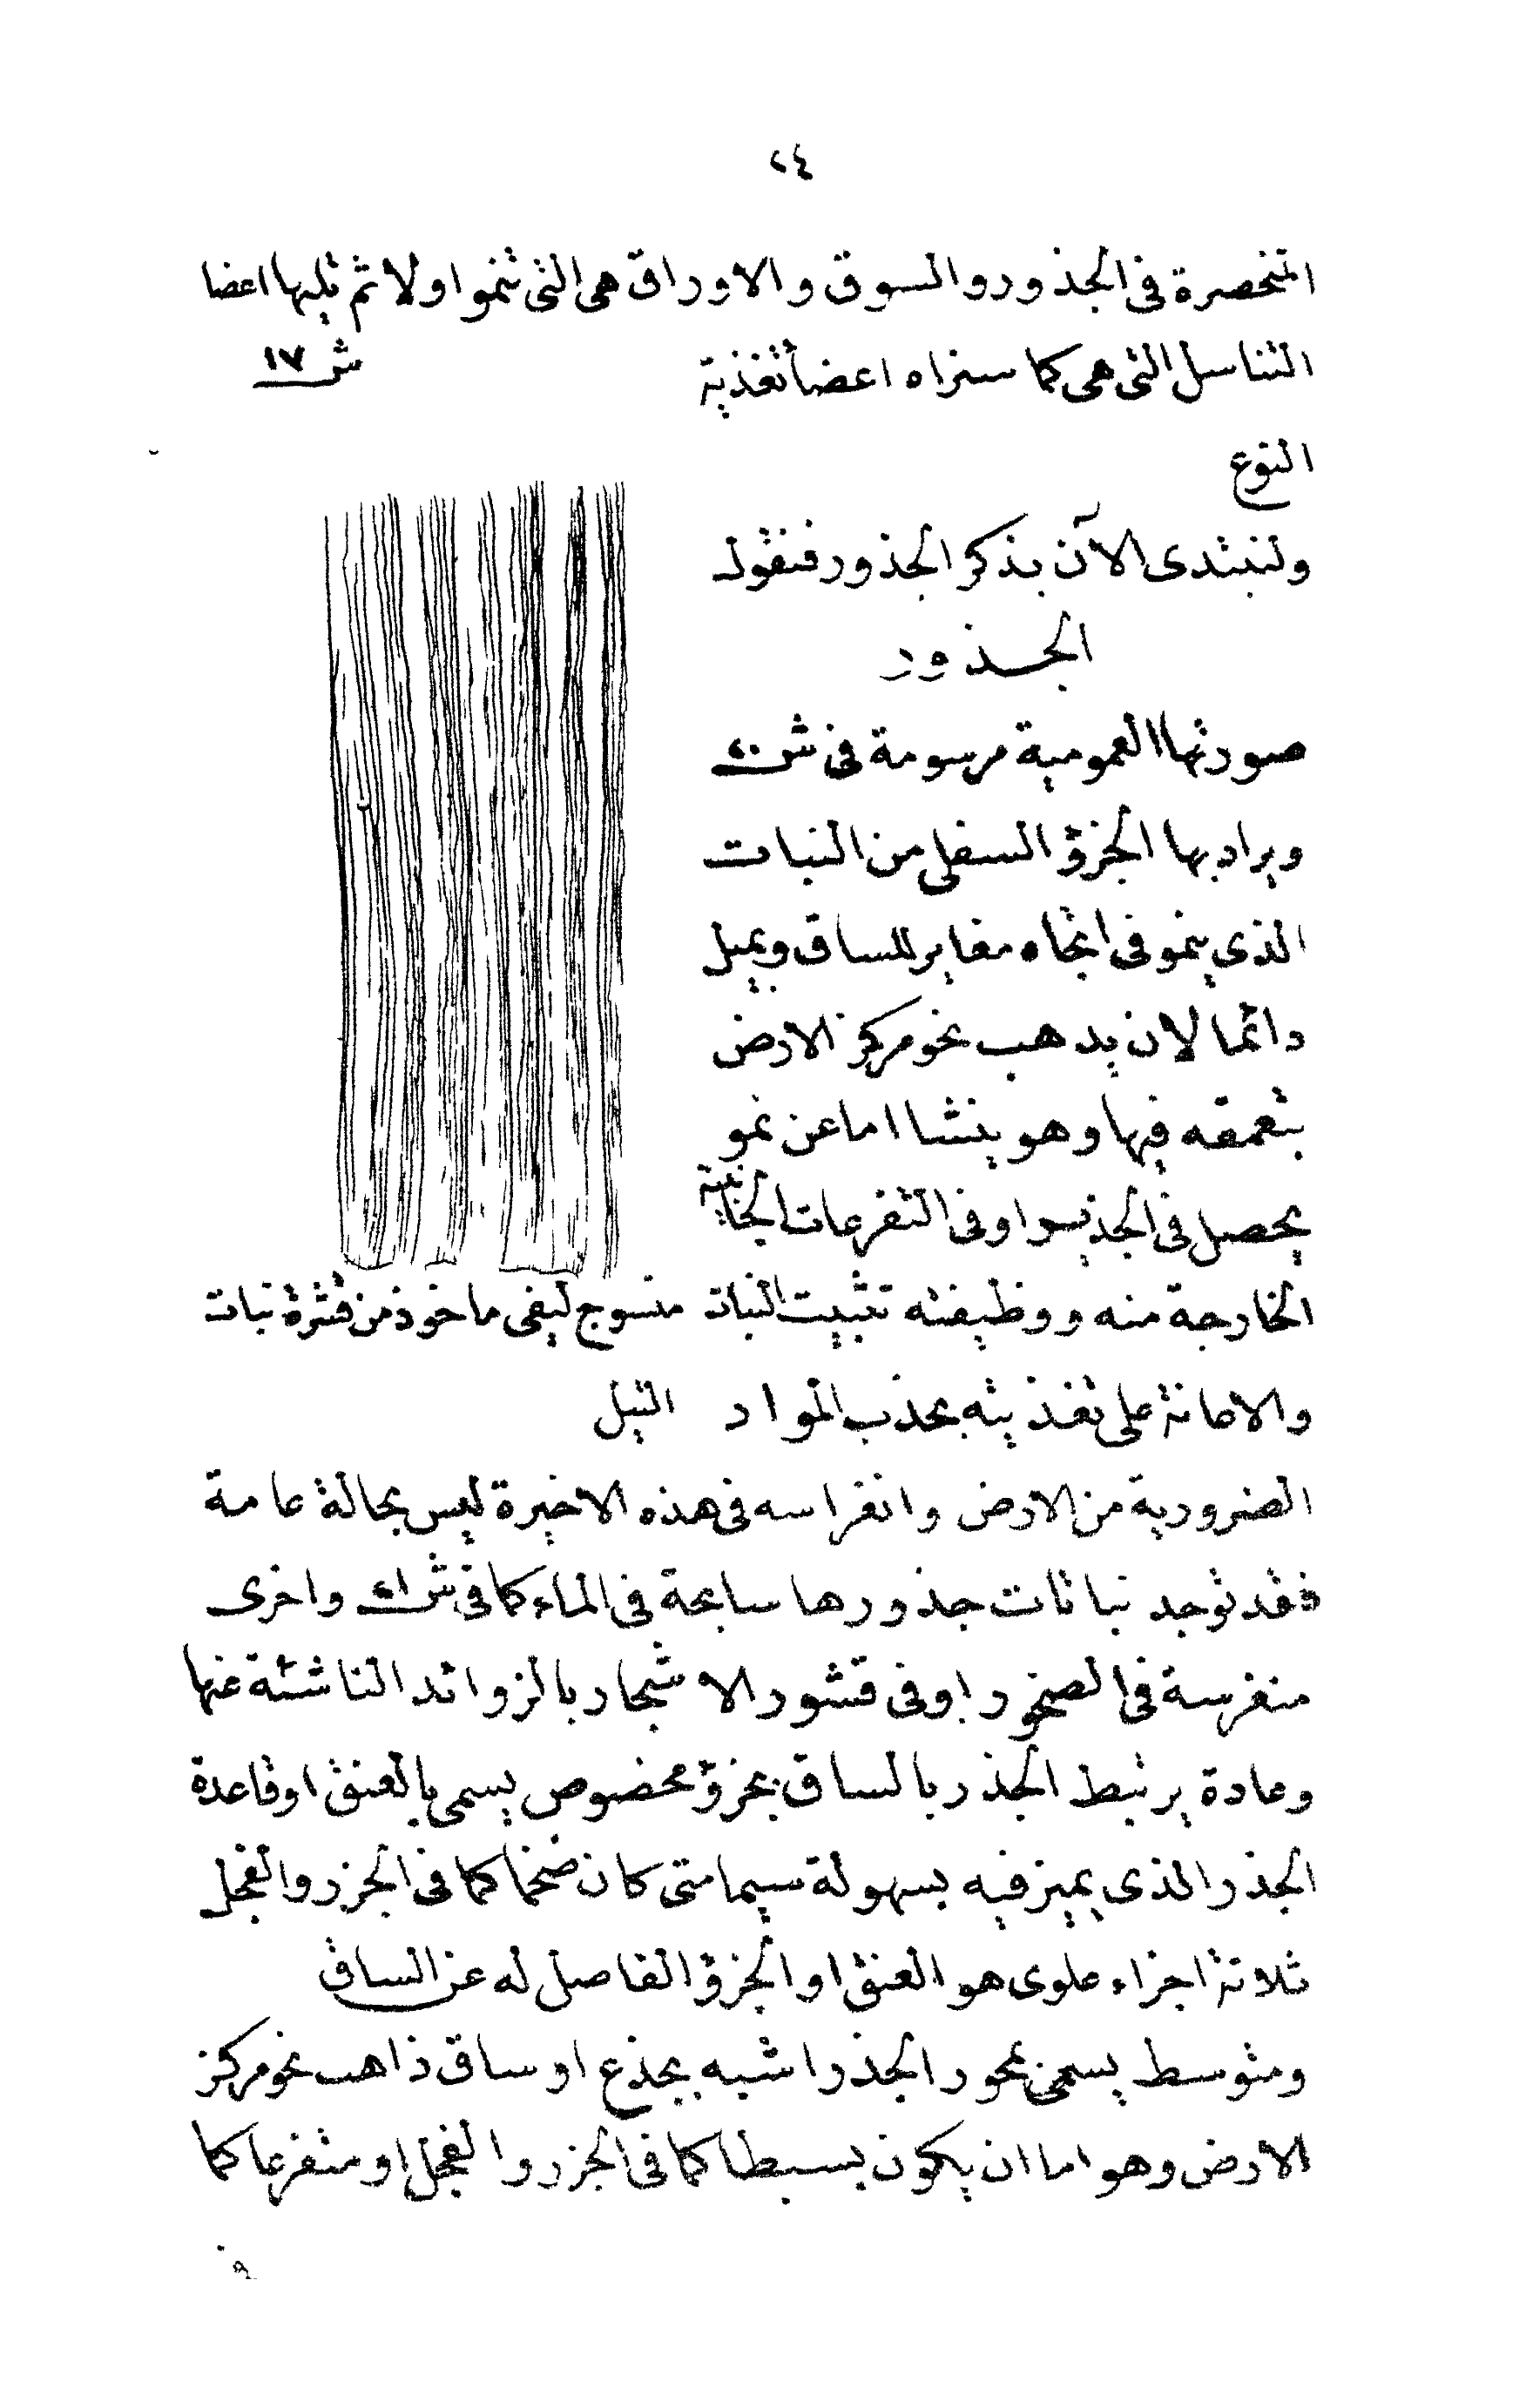 ٢٤
المنحصرة فى الجذور والسوق والاوراق هى التى تنموا ولا ثم تليها اعضا
التناسل التى هى كما سنراه اعضا تغذية
ش ١٧
النوع
ولنبتدى الآن بذكر الجذور فنقول
الجذور
صورتها العمومية مرسومة فى ش ٢٠
ويراد بها الجزؤ السفلى من النبات
الذى ينمو فى اتجاه مغاير للساق ويميل
دائما لان يدهب نحو مركز الارض
بتعمقه فيها وهو ينشا اما عن نمو
يحصل فى الجذيو او فى التفرعات الجانبية
الخارجة منه ووظيفته تثبيت النبات
منسوج ليفى ماخوذ من قشرة نبات
والاعانة على تغذيته بجذب المواد
التيل
الضرورية من الارض وانغراسه فى هذه الاخيرة ليس بحالة عامة
فقد توجد نباتات جذورها سابحة فى الماء كما فى ش ٢١ واخرى
منغرسة فى الصخور او فى قشور الاشجار بالزوائد الناشئة عنها
وعادة يرتبط الجذر بالساق بجزؤ مخصوص يسمى بالعنق او قاعدة
الجذر الذى يميز فيه بسهولة سيما متى كان ضخما كما فى الجزر والفجل
ثلاثة اجزاء علوى هو العنق او الجزؤ الفاصل له عن الساق
ومتوسط يسمى بمحور الجذر اشبه بجذع او ساق ذاهب نحو مركز
الارض وهو اما ان يكون بسيطا كما فى الجزر والفجل او متفرعا كما